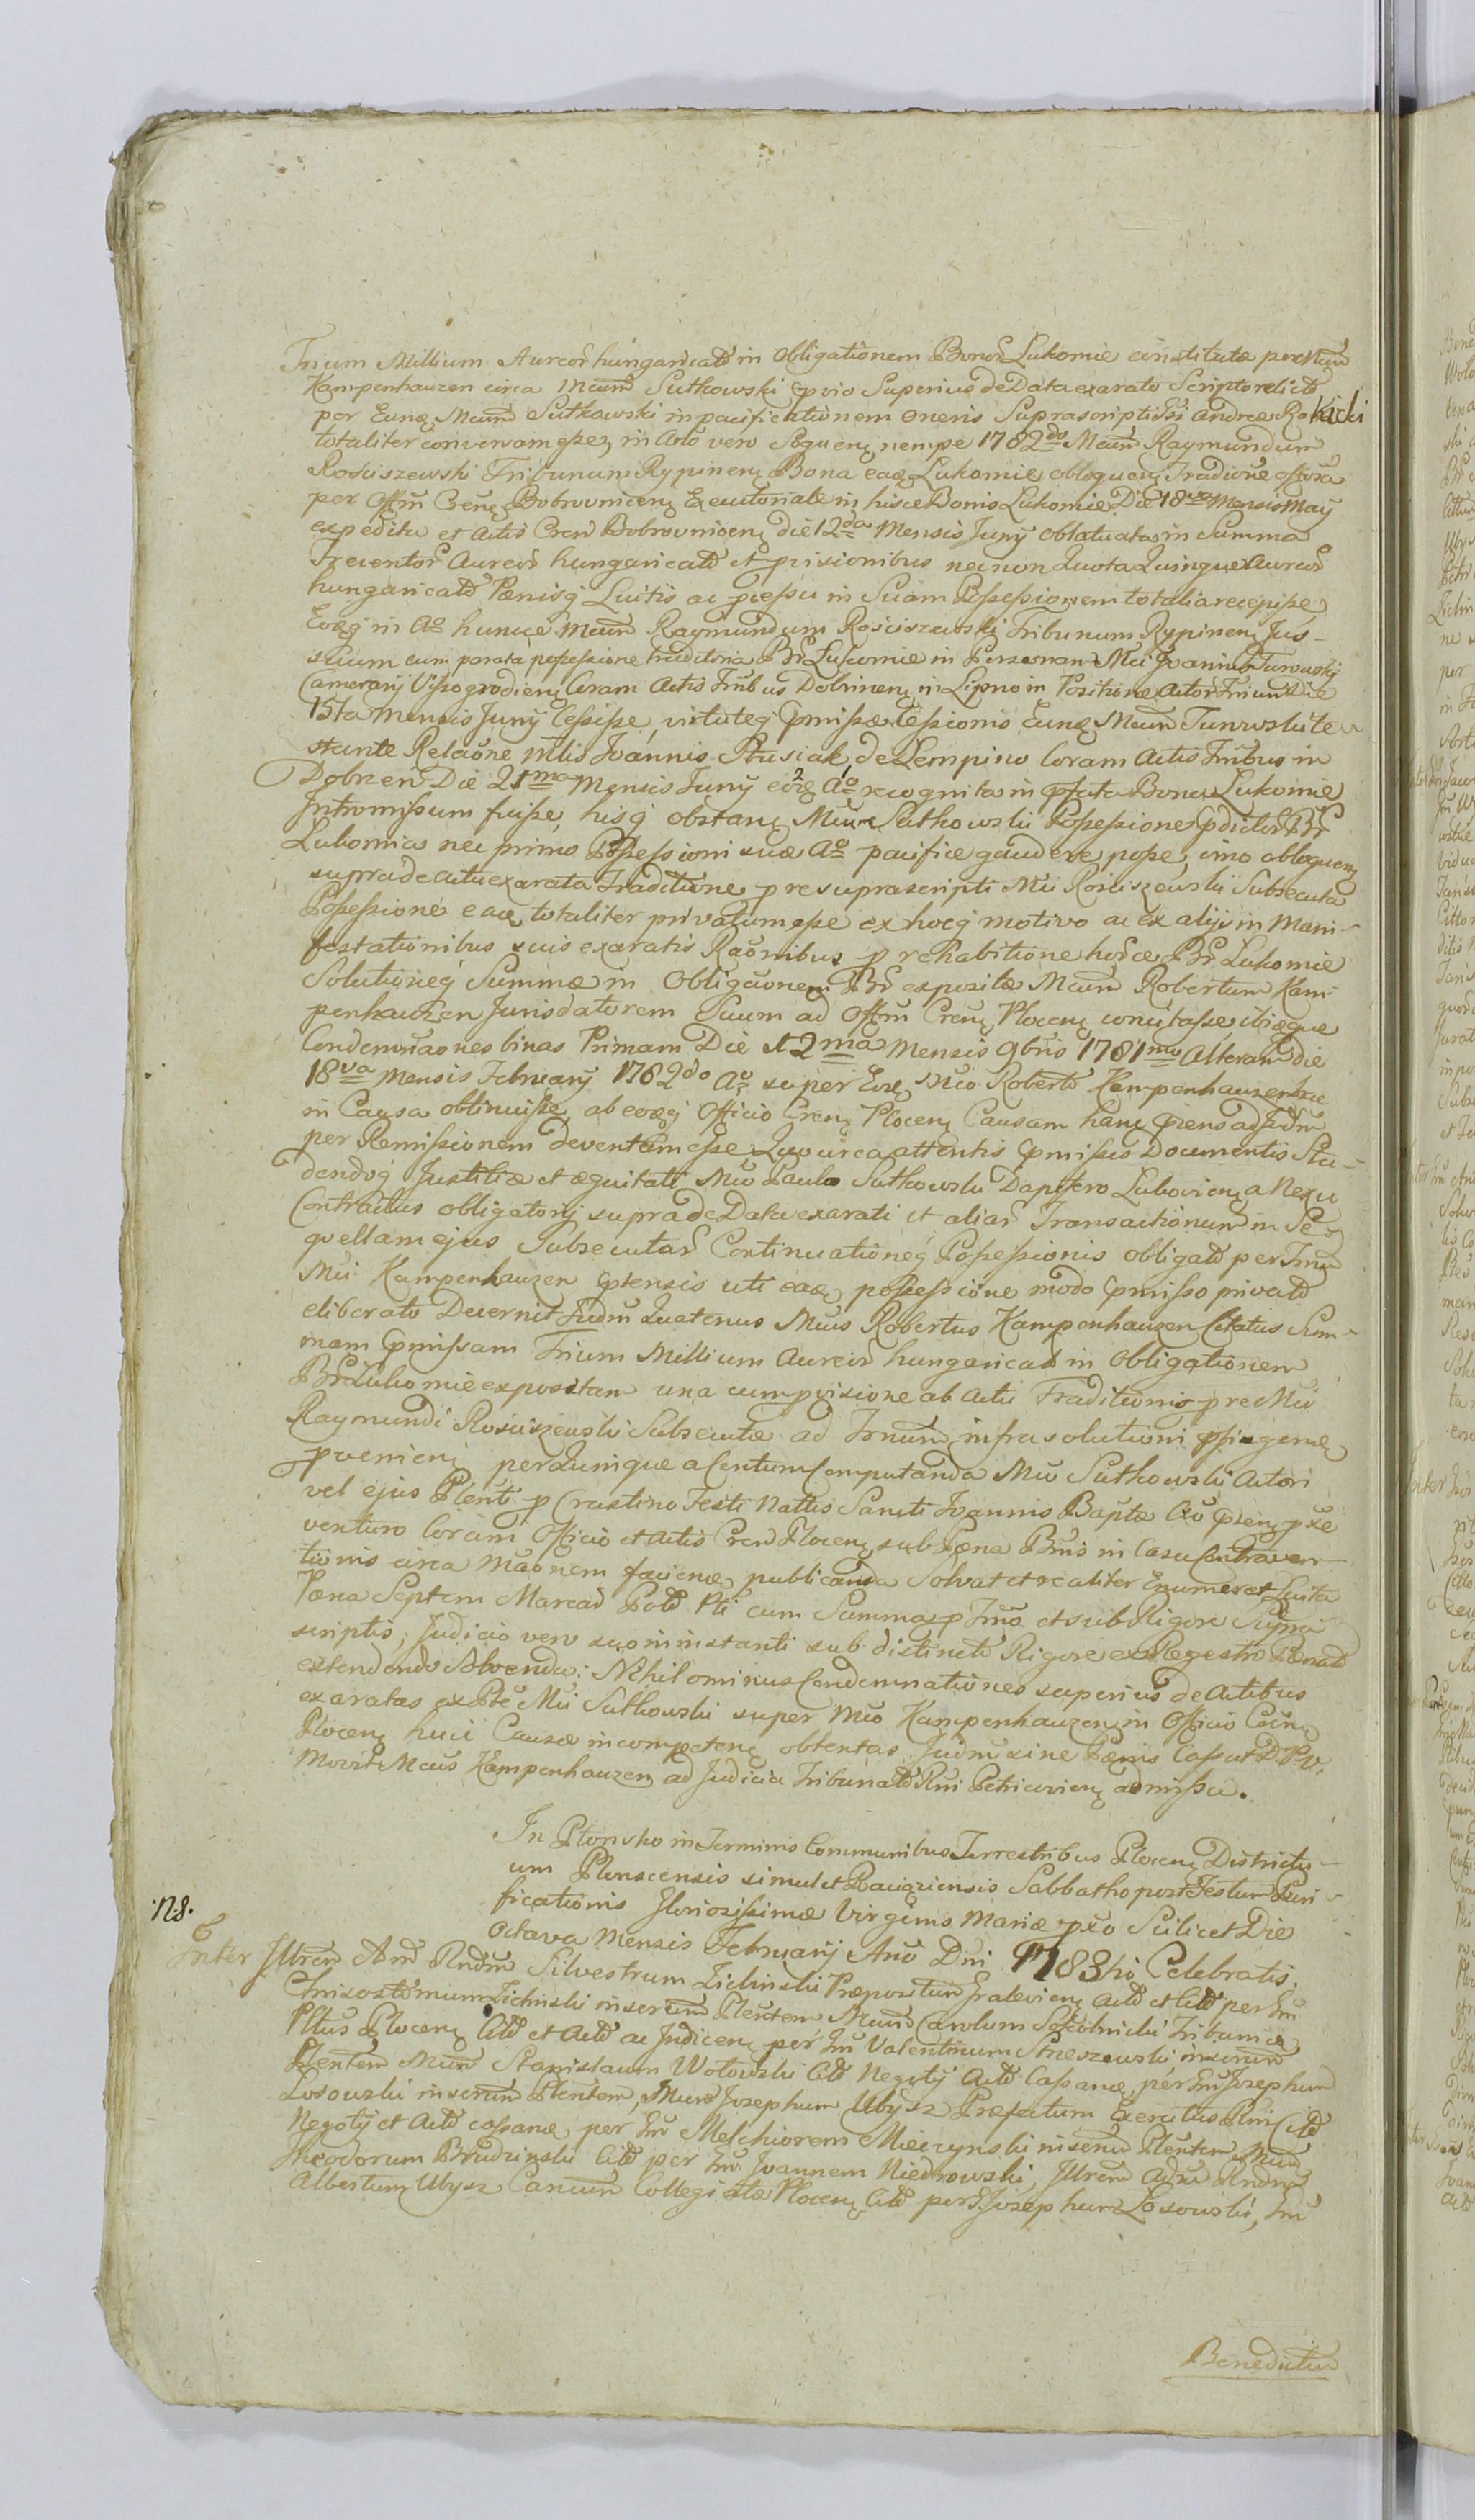 Trium Millium Aureor̃ hungaricalĩ in Obligationem Bonor̃ Lukomie constitutæ per Mcum
Kampenhauzen circa Mcum Sutkowski prævio Superius de Data exarato Scripto relicto
per Eunq Mcum Sutkowski in pacificationem oneris Suprascripti Gsi Andreæ Rokicki
totaliter conversam esse, in Aõ vero Sequenq nempe 1782do Mcum Raymundum
Rościszewski Tribunum Rypinenq Bona eaq Lukomie obloquenq Traditione officiosa
per Offm Crenq Bobrownicenq Executoriale in hisce Bonis Lukomie Die 18va Mensis Maij
expedita et Actis Cren Bobrownicenq die 12da Mensis Junij oblatuata in Summa
Trecentor̃ Aureor̃ hungaricalĩ et prixionibus necnon Quota Quinque Aureor̃
hungaricalĩ Pænisq Luitis ac pressu in Suam Possessionem totalia recepisse,
Eoq in Aõ hunce Mcum Raymundum Rościszewski Tribunum Rypinenq Jus
suum cum parata possessione traditoria Br̃ Lukomie in Personam Mci Joannis Turowski
Camerarij Vissogrodienq Coram Actis Trũbus Dobrinenq in Lipno in Positione Actor̃ Trium Die
15ta Mensis Junij Cessisse, virtuteq præmissæ Cessionis Eunq Mcum Turowski te-
stante Relaone Mlis Joannis Stusiak de Lempino Coram Actis Trũbus in
Dobrzen Die 21ma Mensis Junij eoq Aõ recognita in præfata Bona Lukomie
Intromissum fuisse, hisq obstanq Mcum Sutkowski Possessione prædictor̃ Br̃
Lukomia nec primo Possessioni suæ Aõ pacifice gaudere posse, imo obloquenq
supra de actu exarata Traditione p re suprascripti Mci Rościszewski Subsecuta
Possessione eaq totaliter privatum esse ex hocq motivo ac ex alijs in Mani-
festationibus suis exaratis Raonibus p rehabitione horce Br̃ Lukomie
Solutioneq Summæ in Obligaonem Br̃ expositæ Mcum Robertum Kam-
penhauzen Jurisdatorem Suum ad Offm Crenq Plocenq concitasse ibiqque
Condemnaones binas Primam Die 12ma Mensis 9bris 1781mo Alteram die
18va Mensis Februarij 1782do Aõ super Eoq Mco Roberto Kampenhauzen
in Causa obtinuisse, ab eoq Officio Crenq Plocenq Causam hanc præns ad Judm
per Remissionem deventam esse, Quocirca attentis præmissis Documentis Stu-
dendoq Justitiæ et æquitati Mco Paulo Sutkowski Dapifero Lukovienq a Nexu
Contractus obligatorij supra de Data exarati et aliar̃ Transactionum in Se-
quellam ejus Subsecutar̃ Continuationeq Possessionis obligatĩ per Tm̃
Mci Kampenhauzen prætensis uti eaq possessione modo præmisso privato
eliberato Decernit Judm Quatenus Mcus Robertus Kampenhauzen Citatus Sum-
mam præmissam Trium Millium Aureor̃ hungaricalĩ in Obligationem
Br̃ Lukomie expositam una cum provisione ab actu Traditionis p re Mci
Raymundi Rościszewski Subsecutæ ad Trmum infra solutioni præfigenq
provenienq per Quinque a Centum Computanda Mco Sutkowski Actori
vel ejus Plenti p Crastino Festi Nattis Sancti Joannis Baptæ Aõ præenq pxe
venturo Coram Officio et Actis Cren Plocenq sub Pæna Bnis in Casu Contraven-
tionis circa Maonem facienq publicanda Solvat et realiter Enumeret Luita
Pæna Septem Marcar̃ Polo Pti cum Summa p Trmo et sub Rigore Supra
scriptis, Judicio vero suo in instanti sub distincto Rigore ex Regestro Pænalĩ
extendendo Solvenda; Nihilominus Condemnationes superius de Actibus
exaratas ex Pte Mci Sutkowski super Mco Kampenhauzen in Officio Crenq
Plocenq huic Causæ incompetenq obtentas Judm sine Pænis Cassat D. P. V.
Movit Mcus Kampenhauzen ad Judicia Tribunalĩ Rni Petricovienq admissa.
In Płonsko in Terminis Communibus Terrestribus Plocenq Districtu-
um Plonscensis simul et Raciąziensis Sabbatho post Festum Puri-
ficationis Gloriosissimæ Virginis Mariæ pxo Scilicet Die
Octava Mensis Februarij Anõ Dni 1783tio Celebratis.
N.8.
Inter Jllrem Adm Rndm Silvestrum Zielinski Præpositum Gralevienq Actõ et Citõ per Gm
Chrisostomum Zielinski inserum Plentem Mcum Carolum Sokolnicki Tribunice
Pltus Plocenq Citõ et Actõ ac Judicenq per Gm Valentinum Strzeszewski inserum
Plentem Mcum Stanislaum Wołowski Citõ Negotij Actõ Cassanq, per Gm Josephum
Łosowski inserum Plentem, Mcum Josephum Ubysz Præfectum Exercitus Rni Citõ
Negotij et Actõ cassanq per Gm Melchiorem Mierzynski inserum Plentem Mcum
Theodorum Brudzinski Citõ per Gm Joannem Niedrowski, Jllrem Adm Rndm
Albertum Ubysz Canum Collegiatæ Plocenq Citõ per G. Josephum Łosowski, Gm
Benedictum